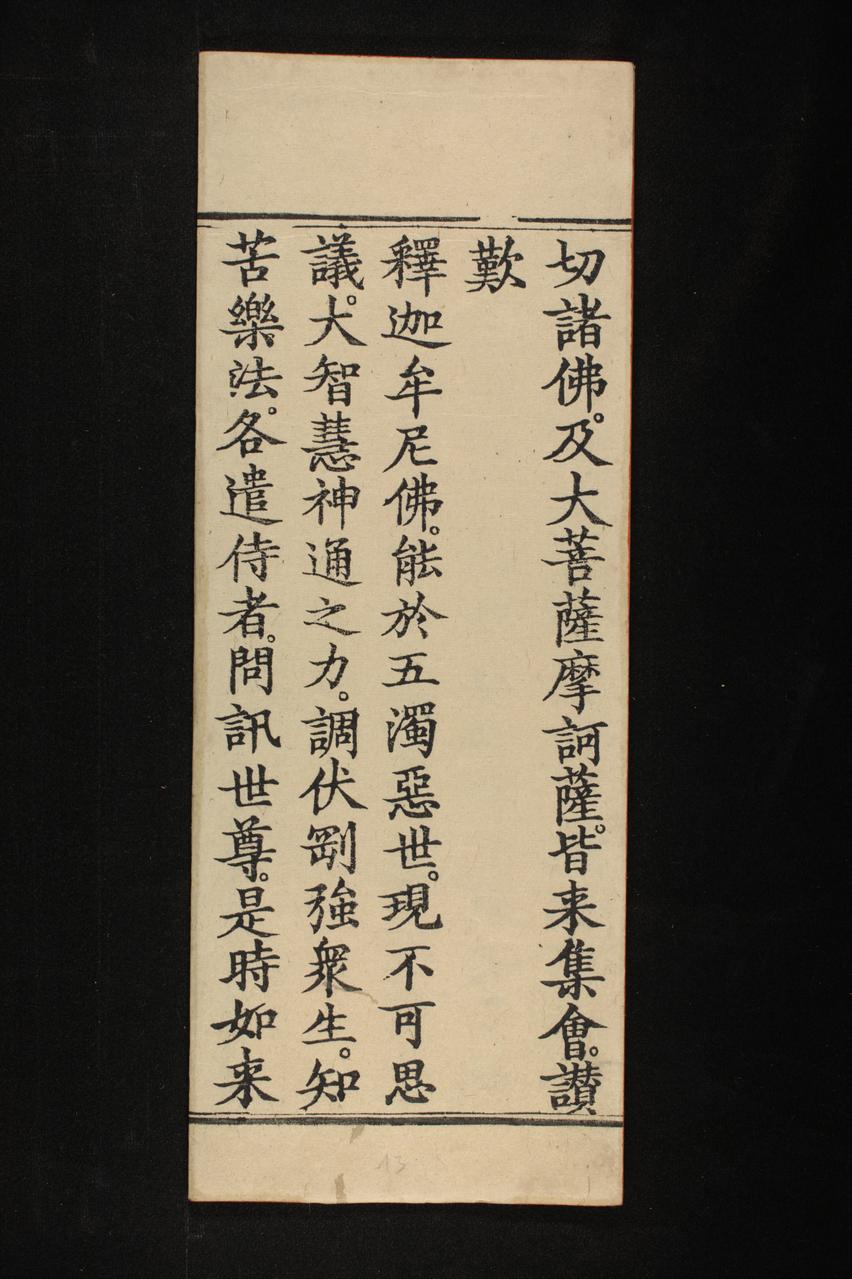 切諸佛。及大菩薩摩訶薩。皆来集會。讃
歎
釋迦牟尼佛。能於五濁惡世。現不可思
議。大智慧神通之力。調伏剛強衆生。知
苦樂法。各遣侍者。問訊世尊。是時如来
13